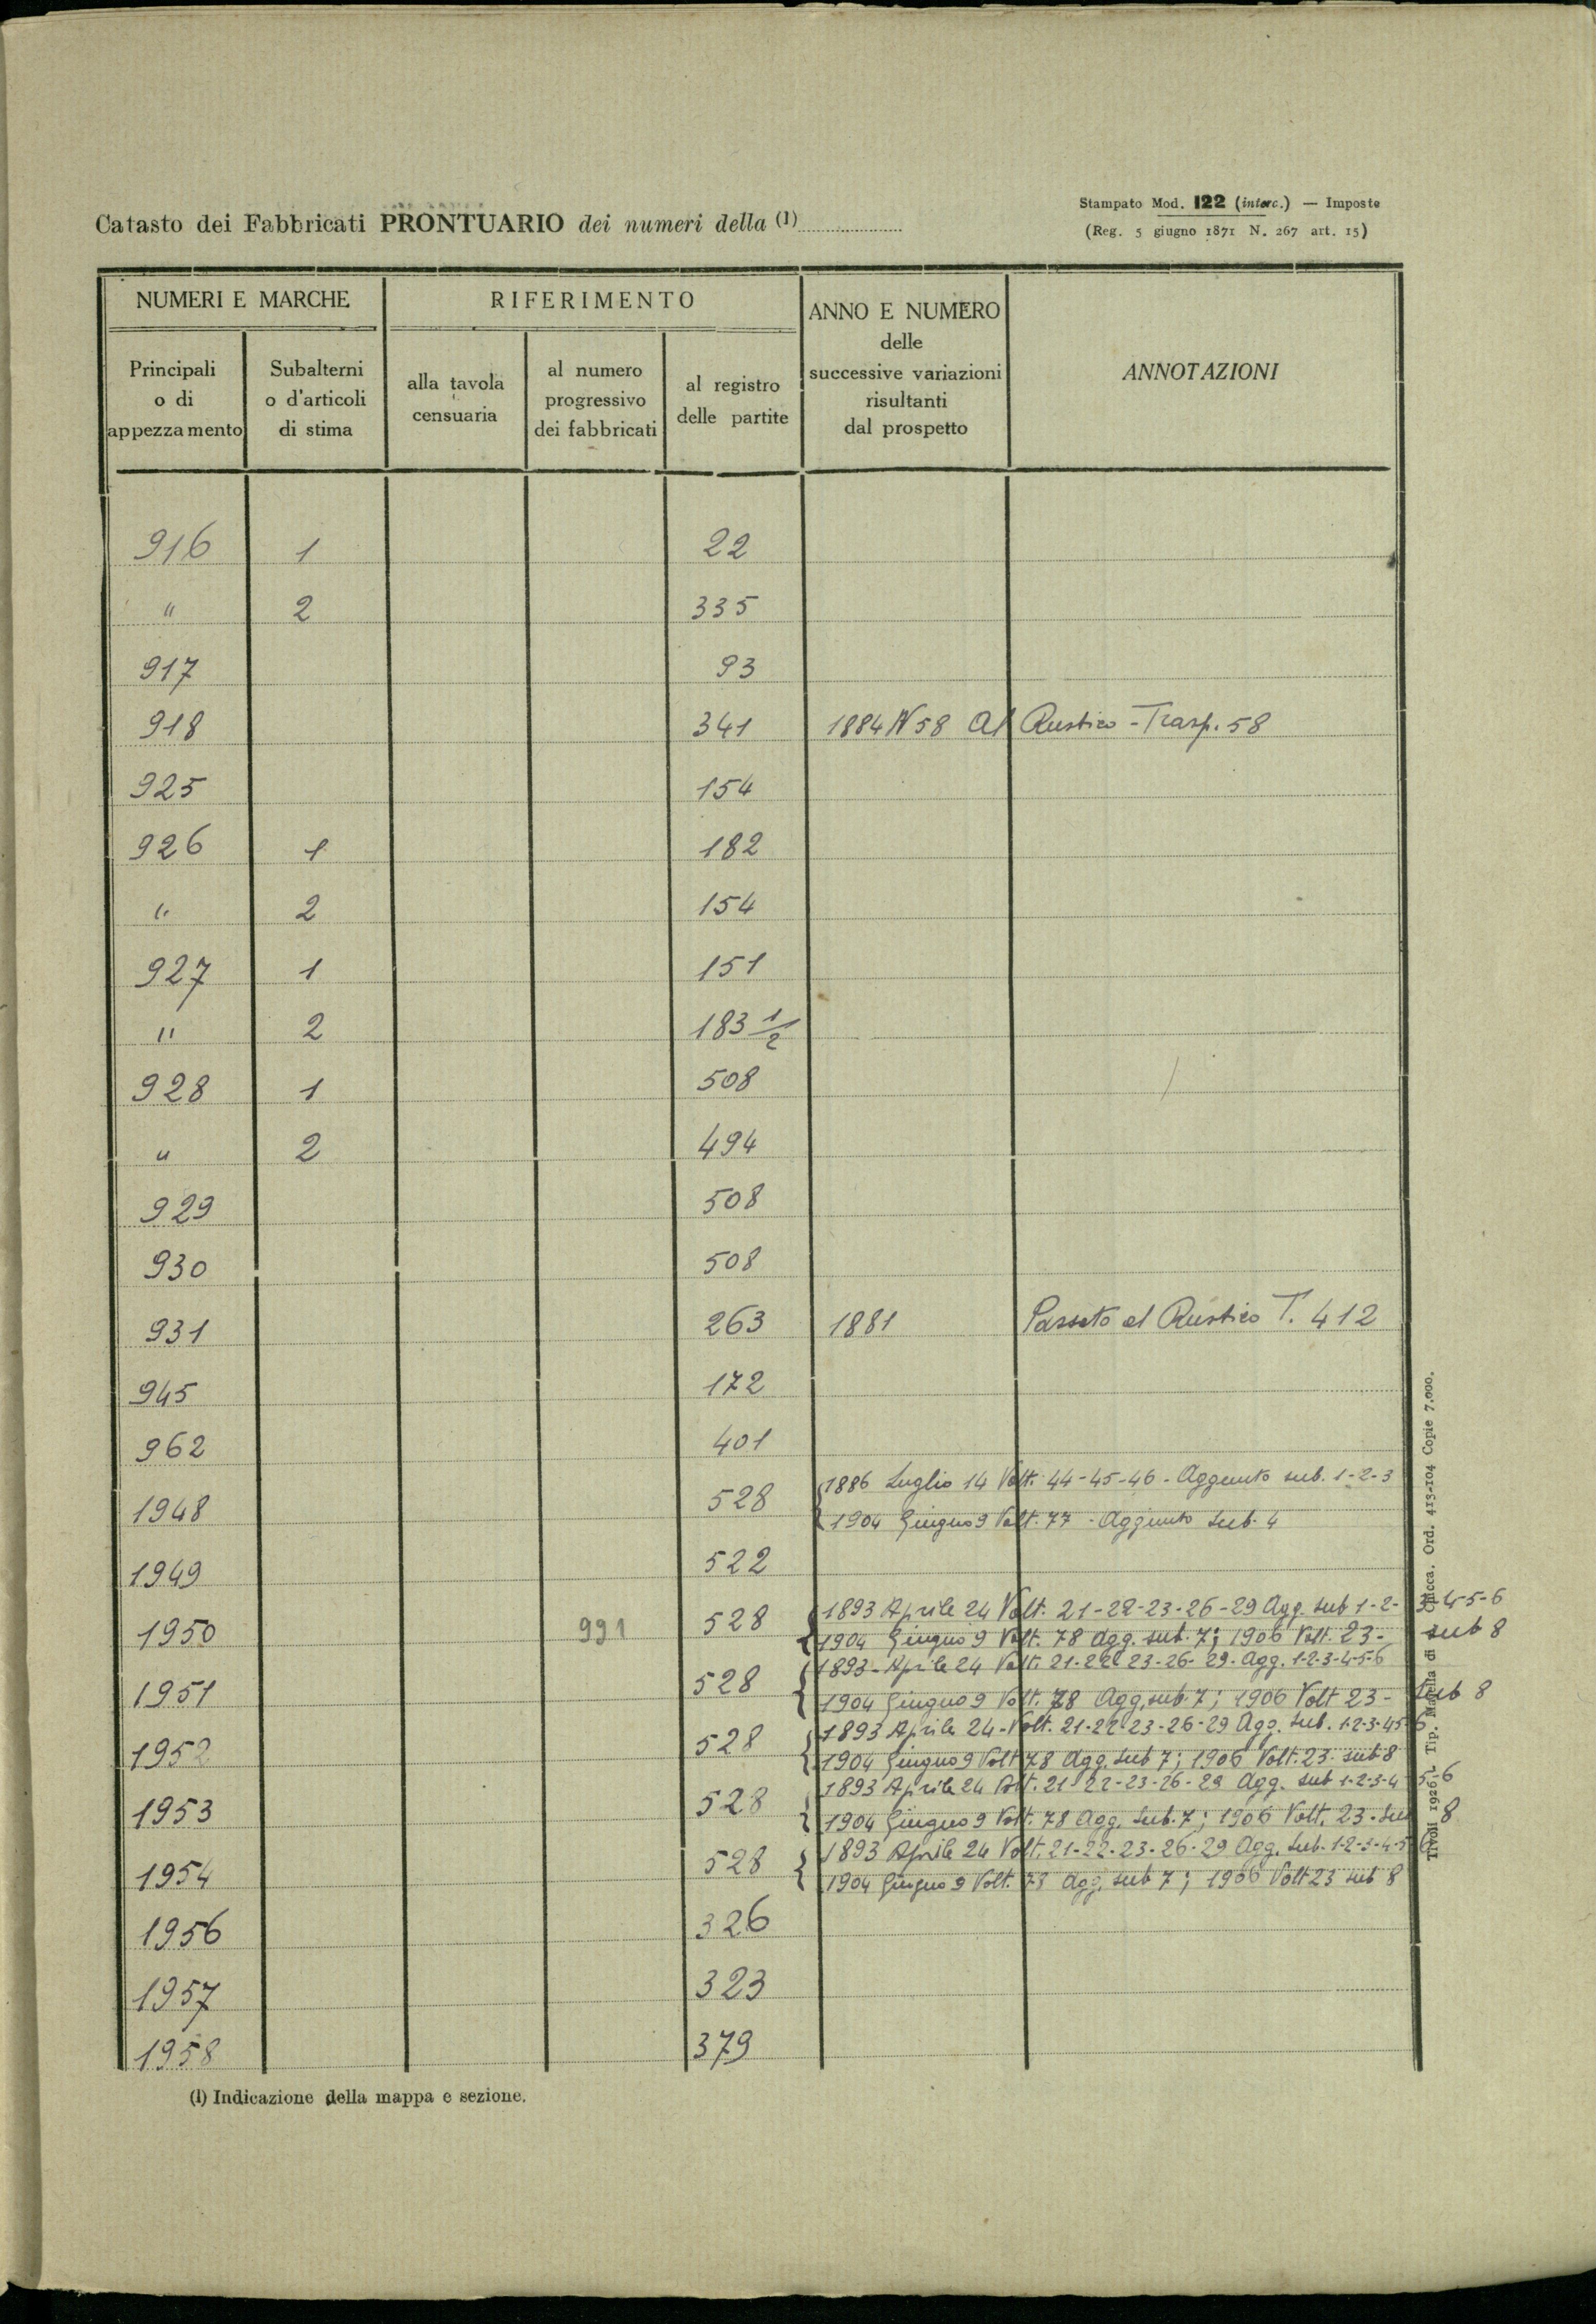 Catasto dei Fabbricati PRONTUARIO dei numeri della (1)
Stampato Mod. 122 (interc.) — Imposte
(Reg. 5 giugno 1871 N. 267 art. 15)
NUMERI E MARCHE
RIFERIMENTO
ANNO E NUMERO
delle
successive variazioni
risultanti
dal prospetto
ANNOTAZIONI
Principali
o di
appezzamento
Subalterni
o d'articoli
di stima
alla tavola
censuaria
al numero
progressivo
dei fabbricati
al registro
delle partite
916 1 22
" 2 335
917 93
918 341 1884 N 58 Al Rustico - Trasp. 58
925 154
926 1 182
" 2 154
927 1 151
" 2 183 1/2
928 1 508
" 2 494
929 508
930 508
931 263 1881 Passato al Rustico T. 412
945 172
962 401
1948 528 1886 Luglio 14 Volt. 44-45-46 - Aggiunto sub. 1-2-3
1904 Giugno 9 Volt. 77 - Aggiunto sub. 4
1949 522
1950 991 528 1893 Aprile 24 Volt. 21-22-23-26-29 Agg. sub 1-2-3-4-5-6
1904 Giugno 9 Volt. 78 Agg. sub. 7; 1906 Volt. 23 - sub 8
1951 528 1893 - Aprile 24 Volt. 21-22-23-26-29 - Agg. 1-2-3-4-5-6
1904 Giugno 9 Volt. 78 Agg. sub. 7; 1906 Volt 23 - sub 8
1952 528 1893 Aprile 24 - Volt. 21-22-23-26-29 Agg. sub. 1-2-3-4-5-6
1904 Giugno 9 Volt 78 Agg. sub 7; 1906 Volt. 23 - sub 8
1953 528 1893 Aprile 24 Volt. 21-22-23-26-29 Agg. sub 1-2-3-4-5-6
1904 Giugno 9 Volt. 78 Agg. sub. 7; 1906 Volt. 23 - sub 8
1954 528 1893 Aprile 24 Volt. 21-22-23-26-29 Agg. sub. 1-2-3-4-5-6
1904 Giugno 9 Volt. 78 Agg. sub 7; 1906 Volt 23 sub 8
1956 326
1957 323
1958 379
(1) Indicazione della mappa e sezione.
Tivoli 1926. Tip. Majella di Chicca. Ord. 413-104 Copie 7.000.